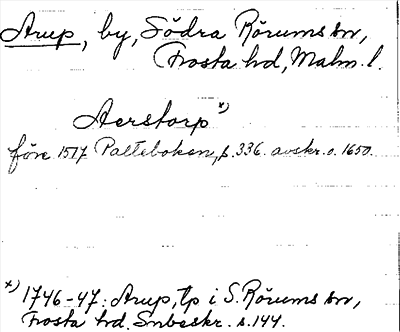 Arup, by, Södra Rörums sn,
Frosta hd, Malm. l.
Aerstorp x)
före 1517 Palteboken, s. 336. avskr. o. 1650.
x) 1746-47: Arup, tp i S. Rörums sn,
Frosta hd. Snbeskr. s. 144.